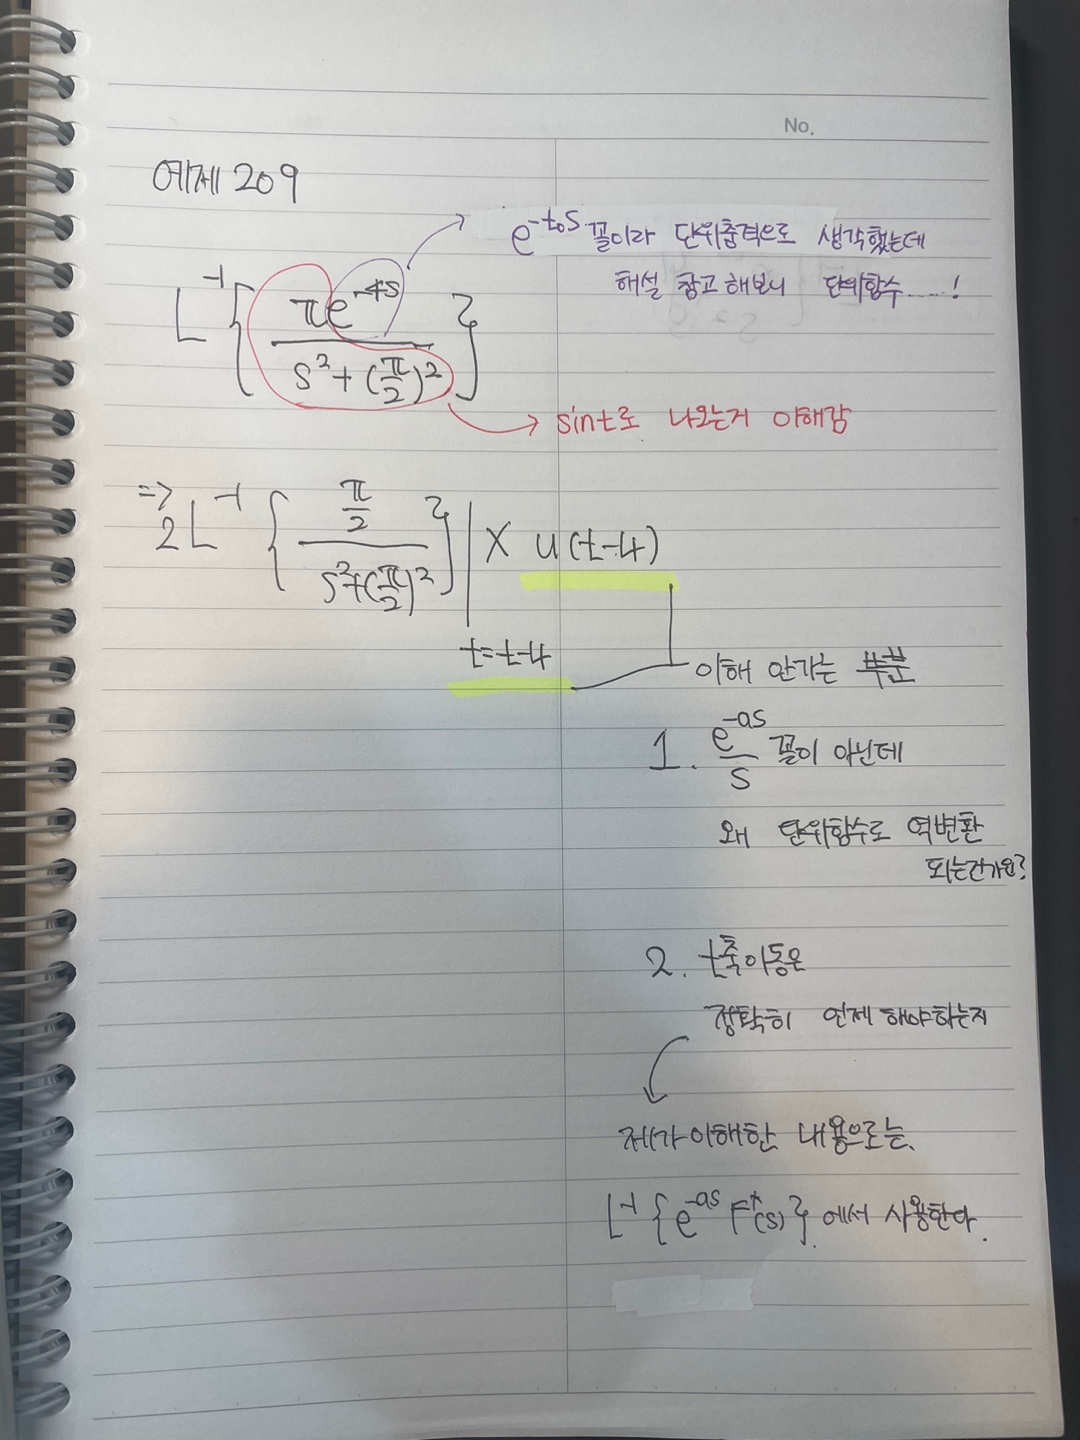 No.
예제 209
e^{-t₀s} 꼴이라 단위충격으로 생각했는데
해설 참고해보니 단위함수.....!
L^{-1} { πe^{-4s} / s²+(π/2)² }
sint로 나오는거 이해감
=> 2L^{-1} { π/2 / s²+(π/2)² } | × u(t-4)
t=t-4
이해 안가는 부분
1. e^{-as}/s 꼴이 아닌데
왜 단위함수로 역변환
되는건가요?
2. t축이동은
정확히 언제 해야하는지
제가 이해한 내용으로는,
L^{-1} {e^{-as} F*(s)} 에서 사용한다.